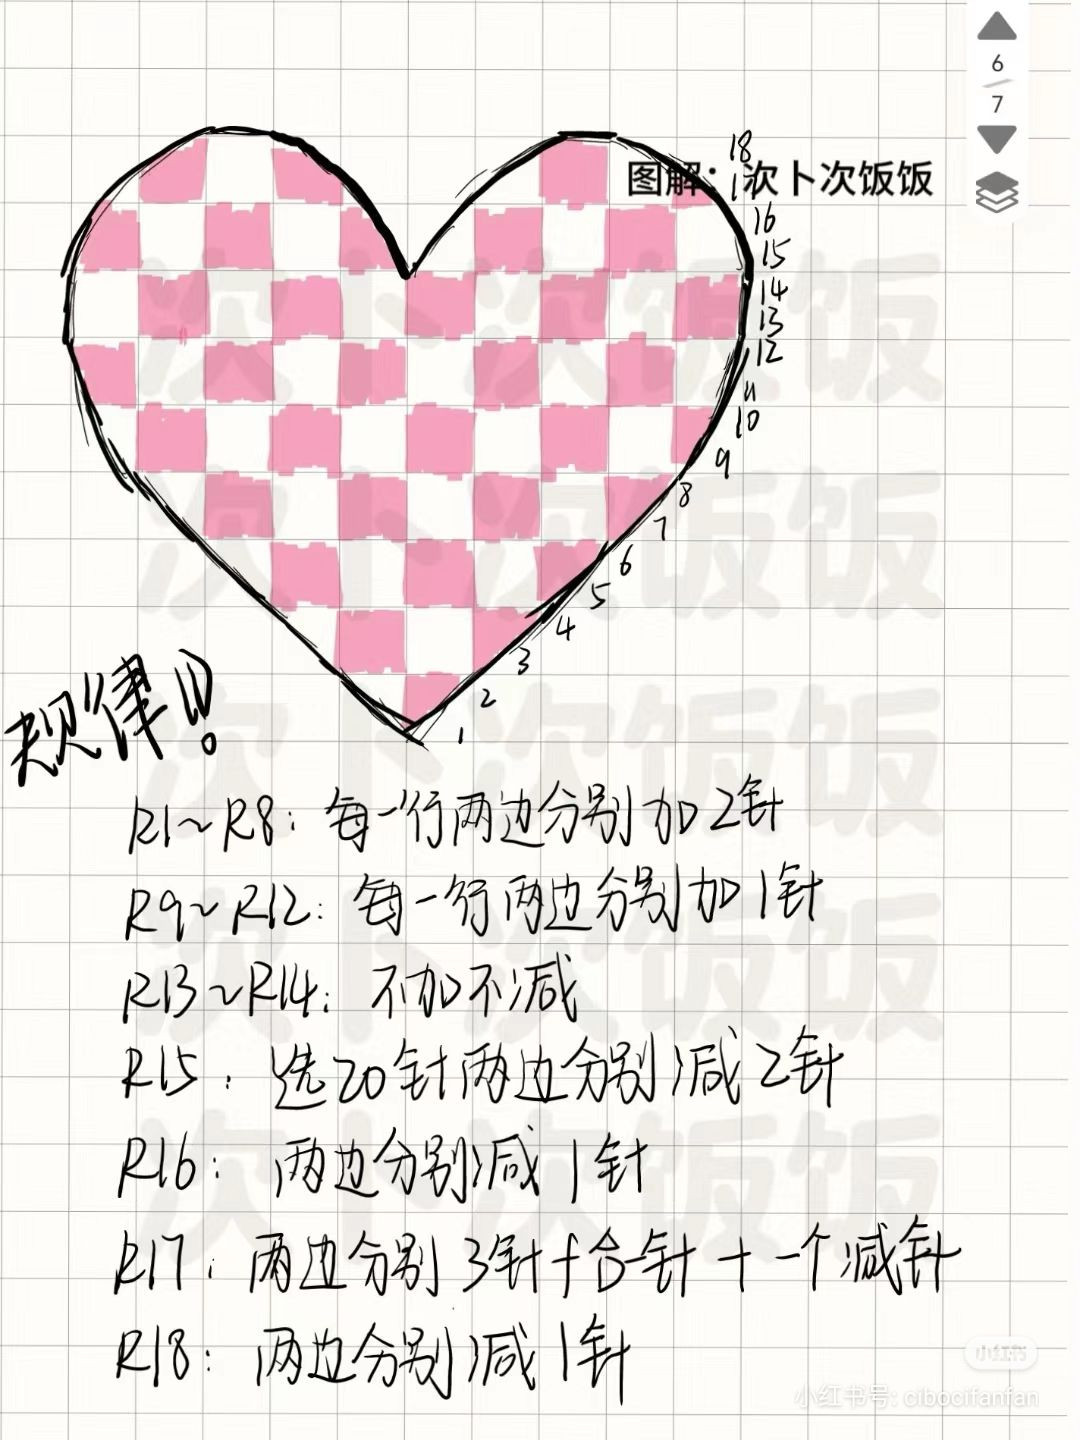 6
7
图解：次卜次饭饭
18
17
16
15
14
13
12
11
10
9
8
7
6
5
4
3
2
1
规律!!
R1~R8：每一行两边分别加2针
R9~R12：每一行两边分别加1针
R13~R14：不加不减
R15：选20针两边分别减2针
R16：两边分别减1针
R17：两边分别3针f合一针+一个减针
R18：两边分别减1针
次卜次饭饭
次卜次饭饭
次卜次饭饭
次卜次饭饭
次卜次饭饭
小红书
小红书号: cibocifanfan